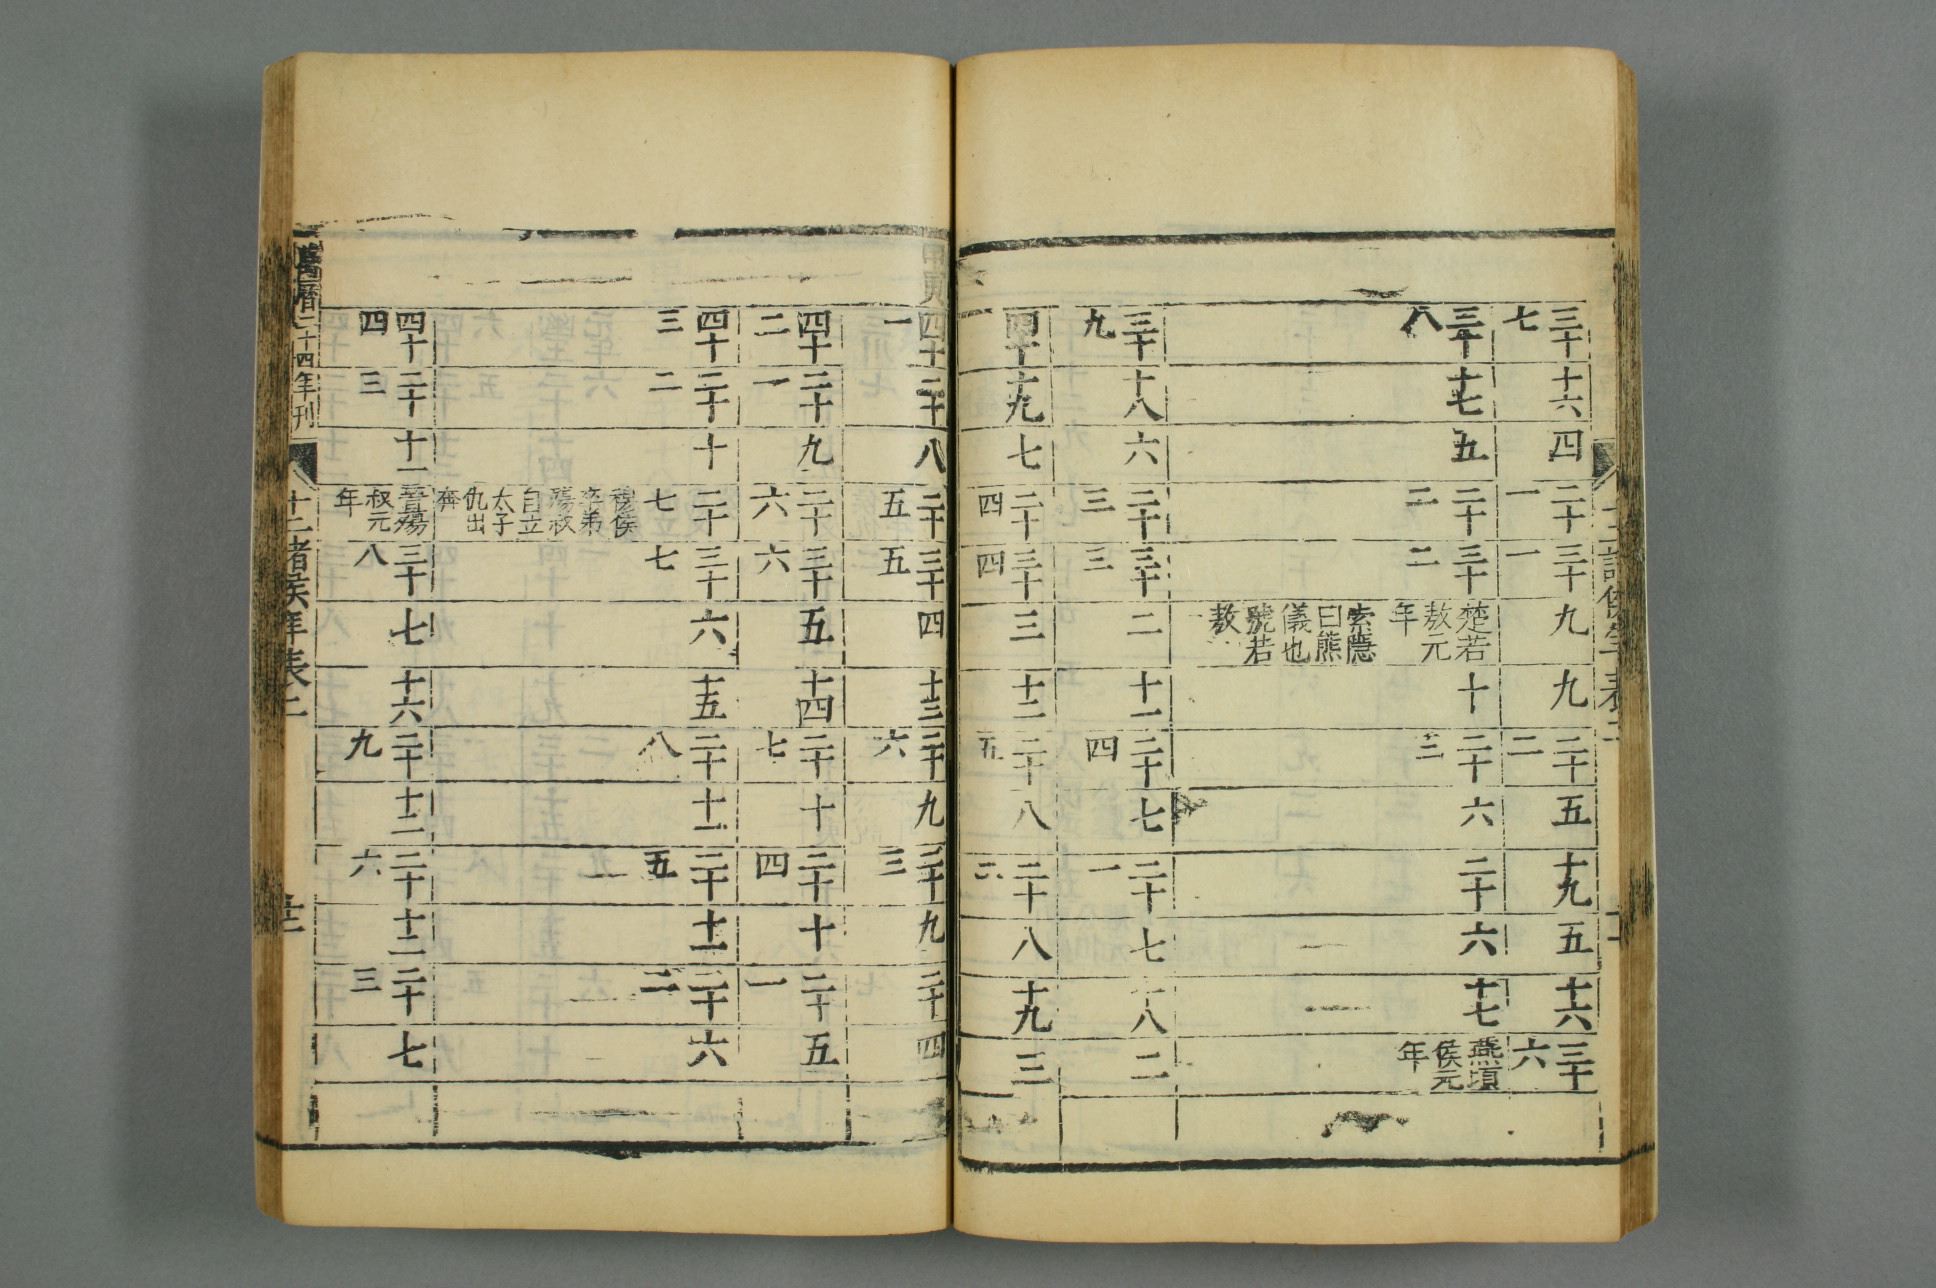 十二諸侯年表二
三十七 十六 四 二十一 三十一 九 九 二十二 五 十九 五 十六 三十六
三十八 十七 五 二十二 三十二 楚若敖元年 索隱曰熊儀也號若敖 十 二十三 六 二十 六 十七 燕頃侯元年
三十九 十八 六 二十三 三十三 二 十一 二十四 七 二十一 七 十八 二
四十 十九 七 二十四 三十四 三 十二 二十五 八 二十二 八 十九 三
甲寅 四十一 二十 八 二十五 三十五 四 十三 二十六 九 二十三 九 二十 四
四十二 二十一 九 二十六 三十六 五 十四 二十七 十 二十四 十 二十一 五
四十三 二十二 十 二十七 穆侯卒弟殤叔自立太子仇出奔 三十七 六 十五 二十八 十一 二十五 十一 二十二 六
四十四 二十三 十一 晉殤叔元年 三十八 七 十六 二十九 十二 二十六 十二 二十三 七
萬曆二十四年刊 十二諸侯年表二